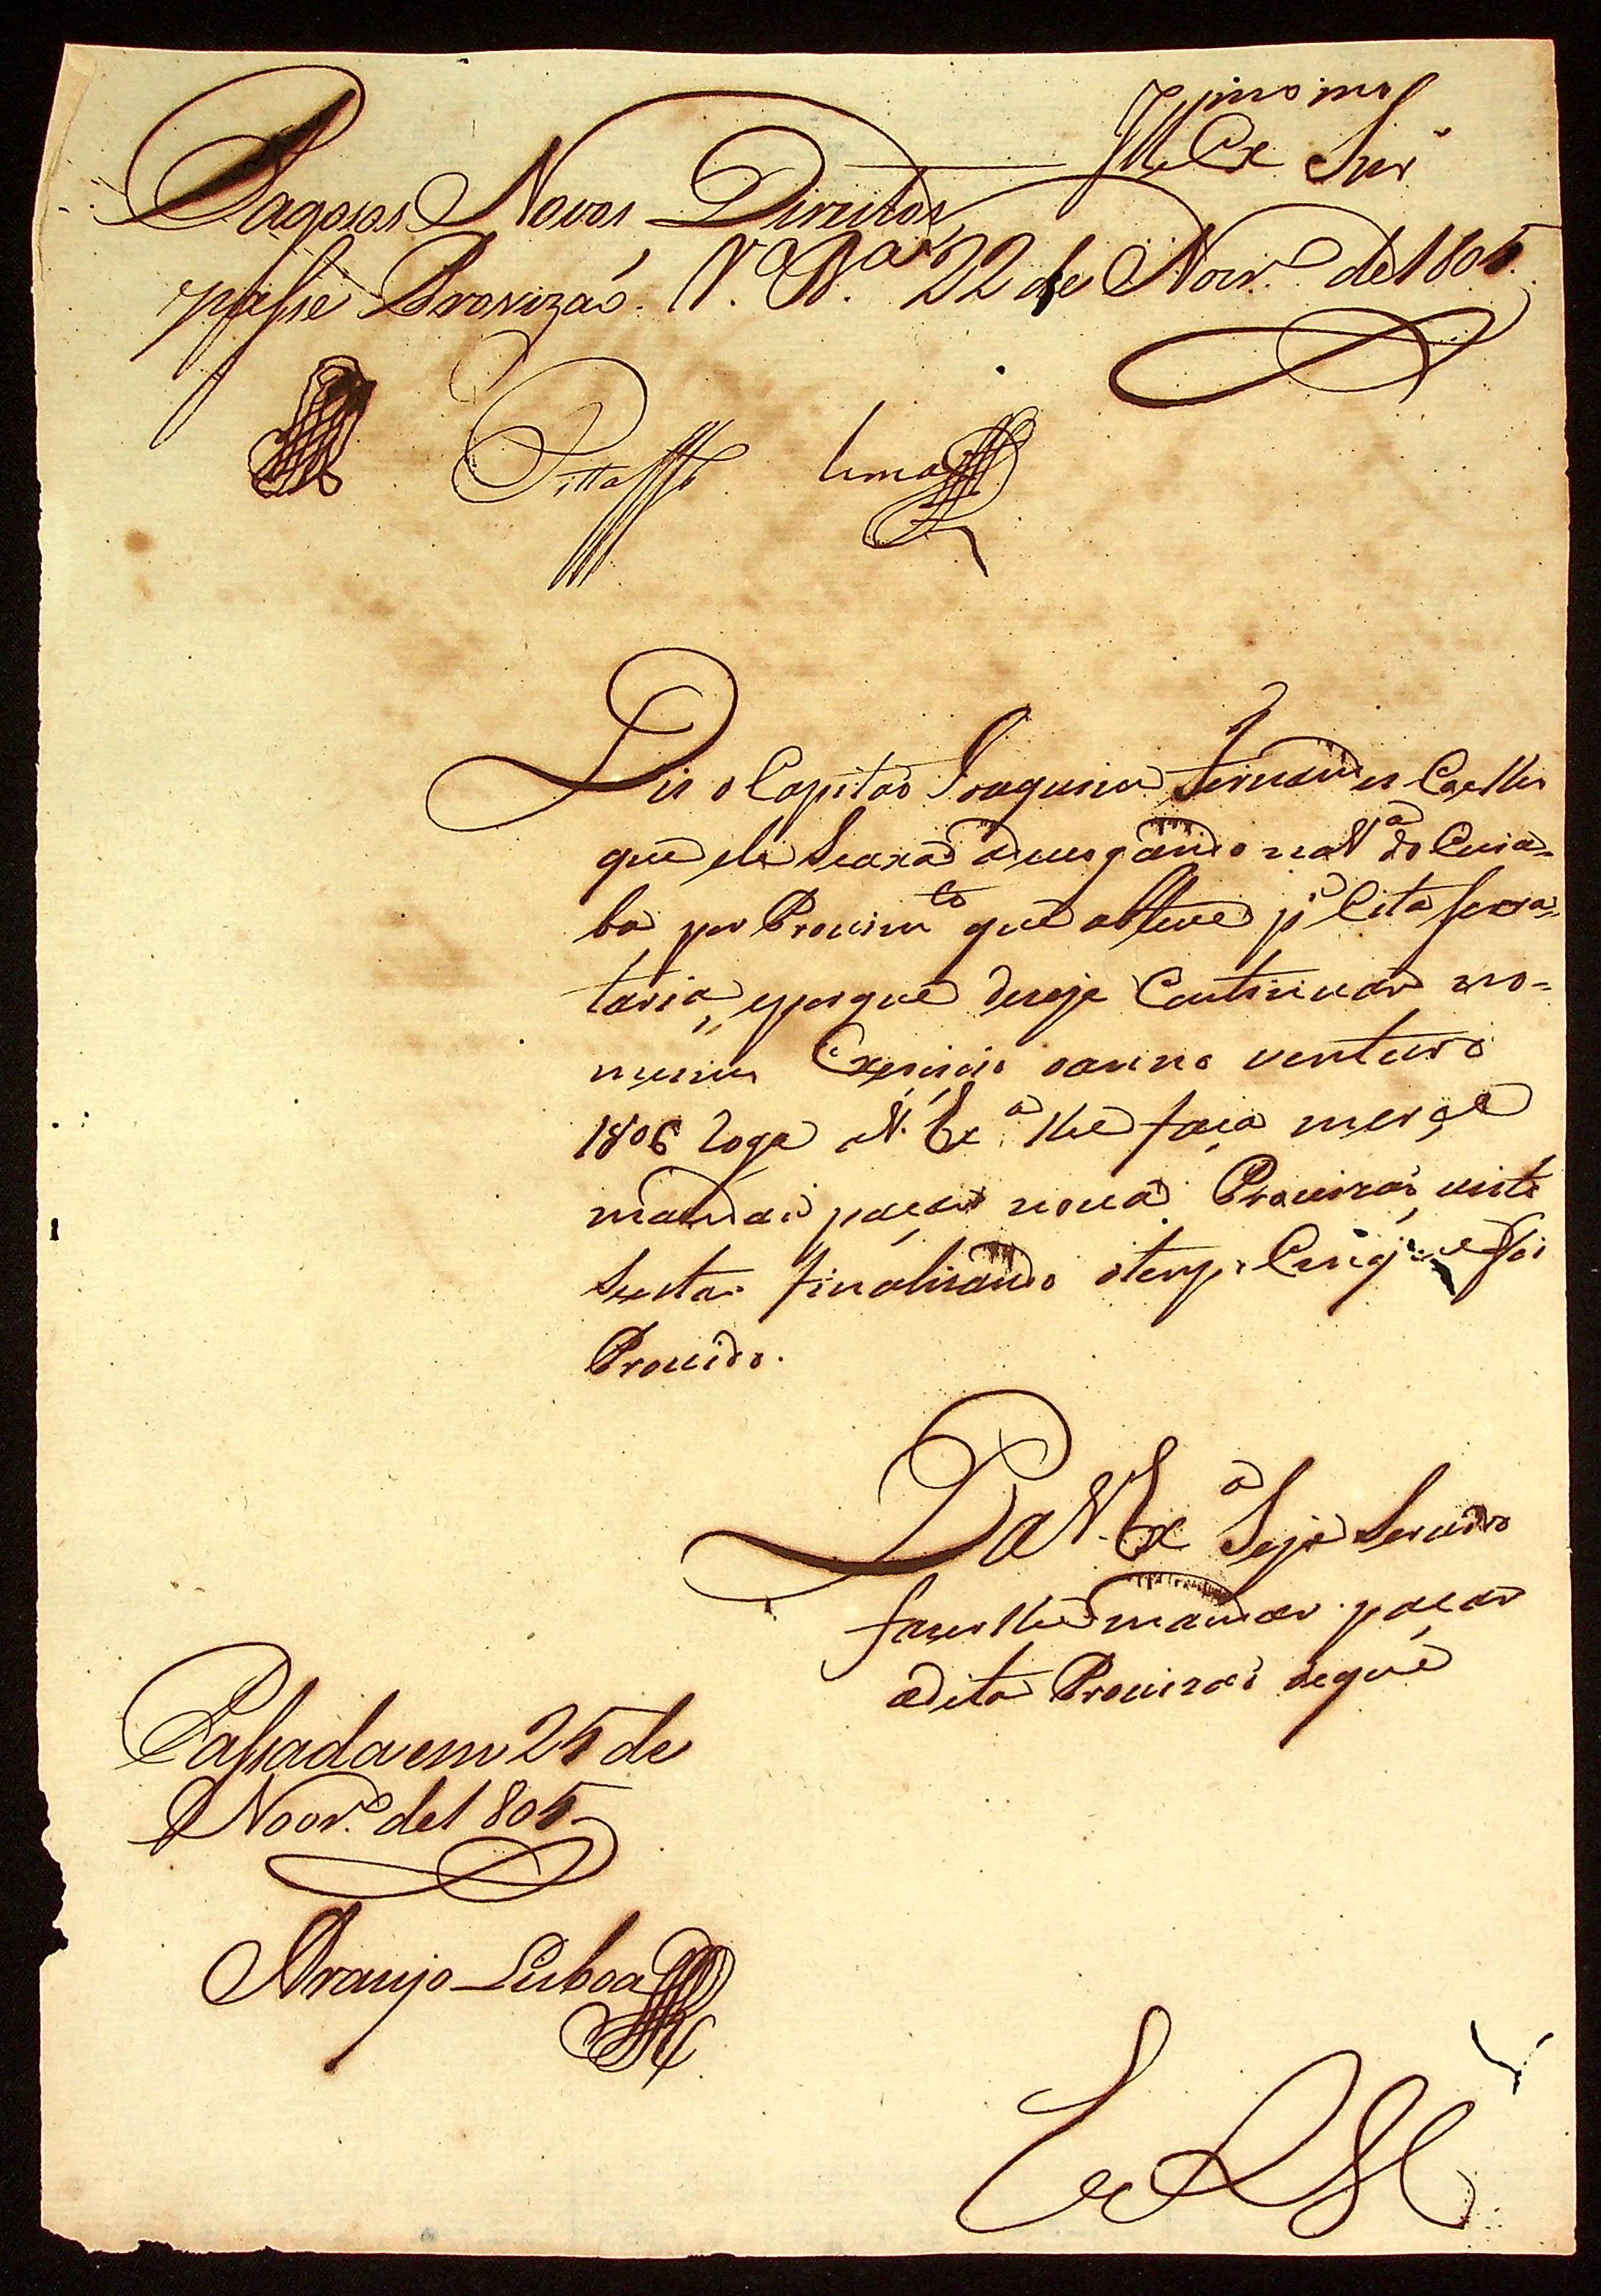 Illmo Exmo Snr
Pagos os Novos Direitos
passe Provizaõ. V.ª B.ª 22 de Novr.º de 1805.
Pitta Lima
Dis o Capitaõ Joaquim Fernandes Coelho
que ele Seaxa aduogando na V.ª do Cuia-
ba por Prouim.to que obteve p.r Esta Secra-
taria, eporque deseja Continuar no-
mesmo Exersisio oanno venturo
1806 Roga aV. Ex.ª lhe faça merçe
mandar paçar noua Prouizaõ, visto
Seestar finalisando otempo Emq' foi
Prouido.
P a V. Ex.ª Seja Seruido
fazer lhe mandar paçar
adita Prouizaõ deque
Passada em 25 de
Novr.º de 1805
Araujo Lisboa
E R M